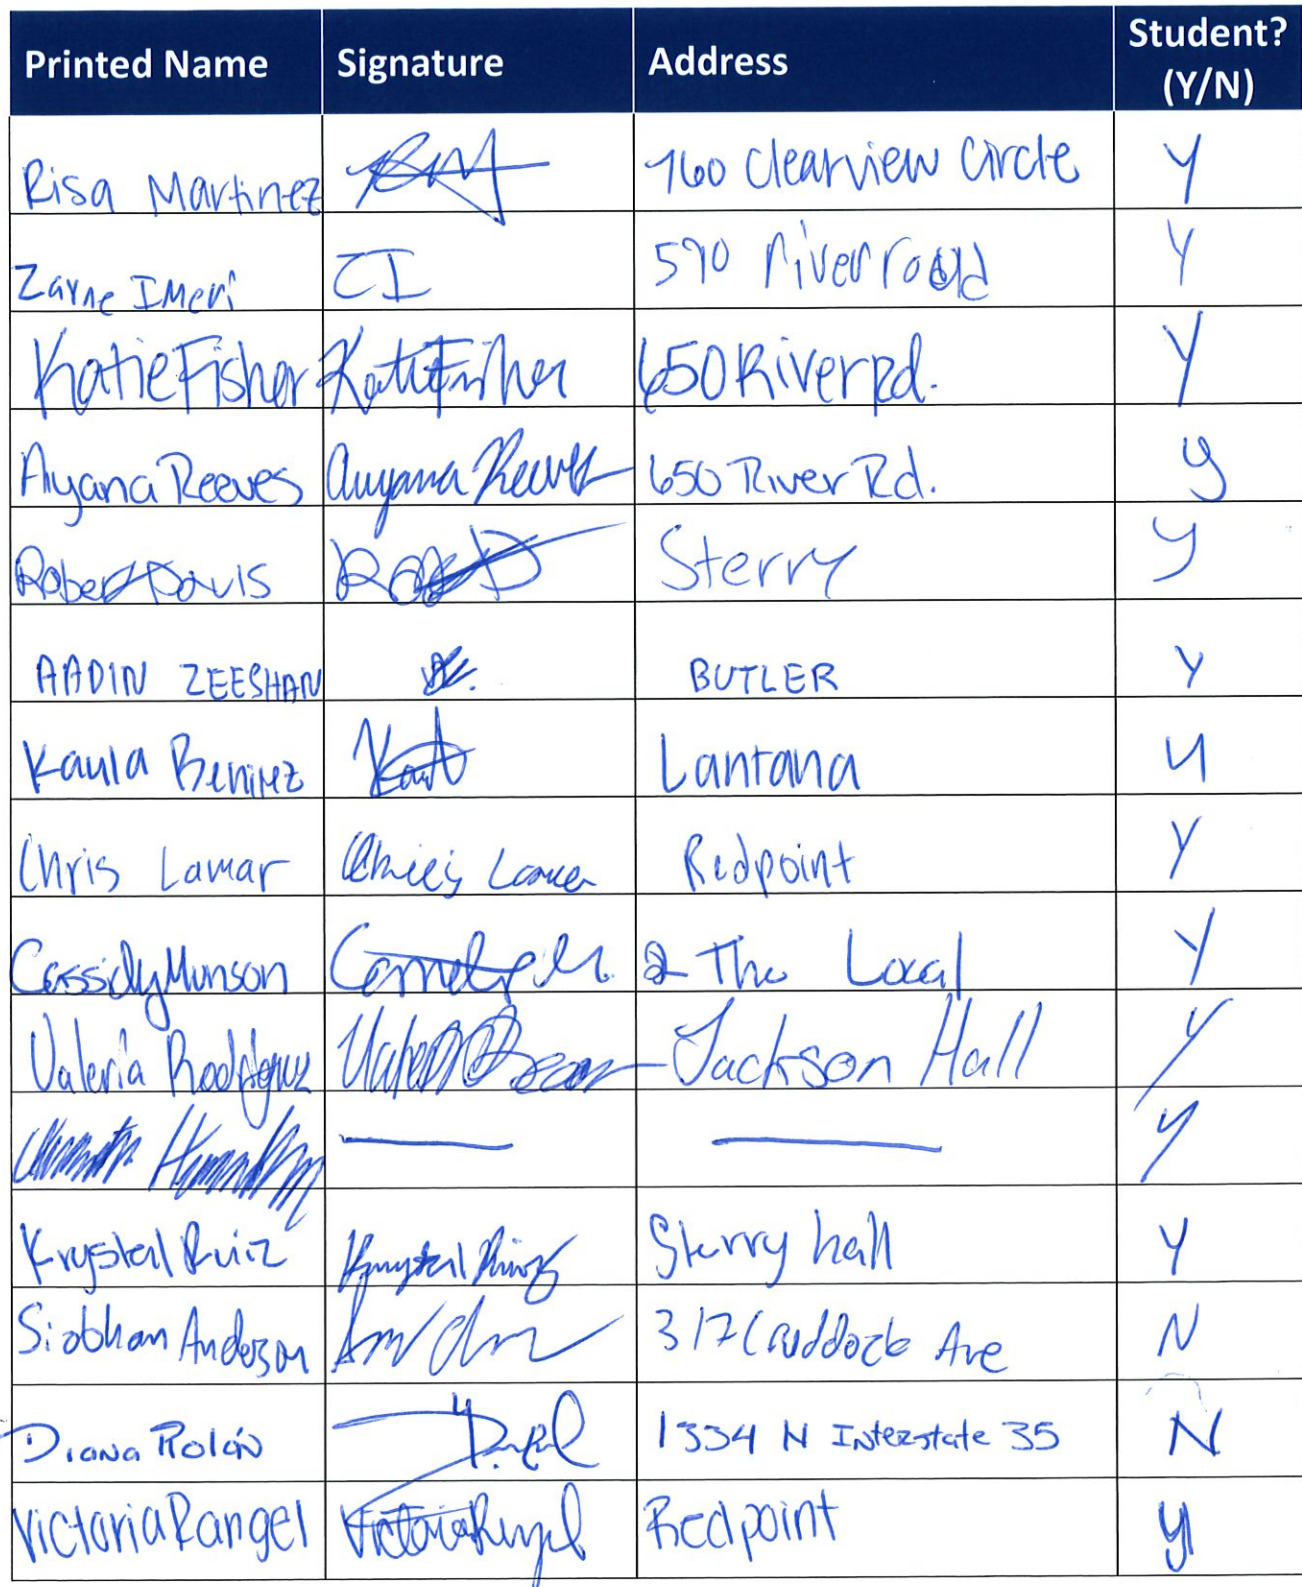 Printed Name Signature Address Student? (Y/N)
Risa Martinez RM 760 Clearview Circle Y
Zayne Imeri ZI 590 River road Y
Katie Fisher Katie Fisher 650 River Rd. Y
Ayana Reeves Ayana Reeves 650 River Rd. y
Robert Davis Sterry y
AADIN ZEESHAN BUTLER Y
Kayla Benitez Lantana y
Chris Lamar Chris Lamar Redpoint Y
Cassidy Munson The Local Y
Valeria Rodriguez Jackson Hall Y
Y
Krystal Ruiz Krystal Ruiz Sterry hall Y
Siobhan Anderson 317 Craddock Ave N
Diana Rolón 1334 N Interstate 35 N
Victoria Rangel Victoria Rangel Redpoint y